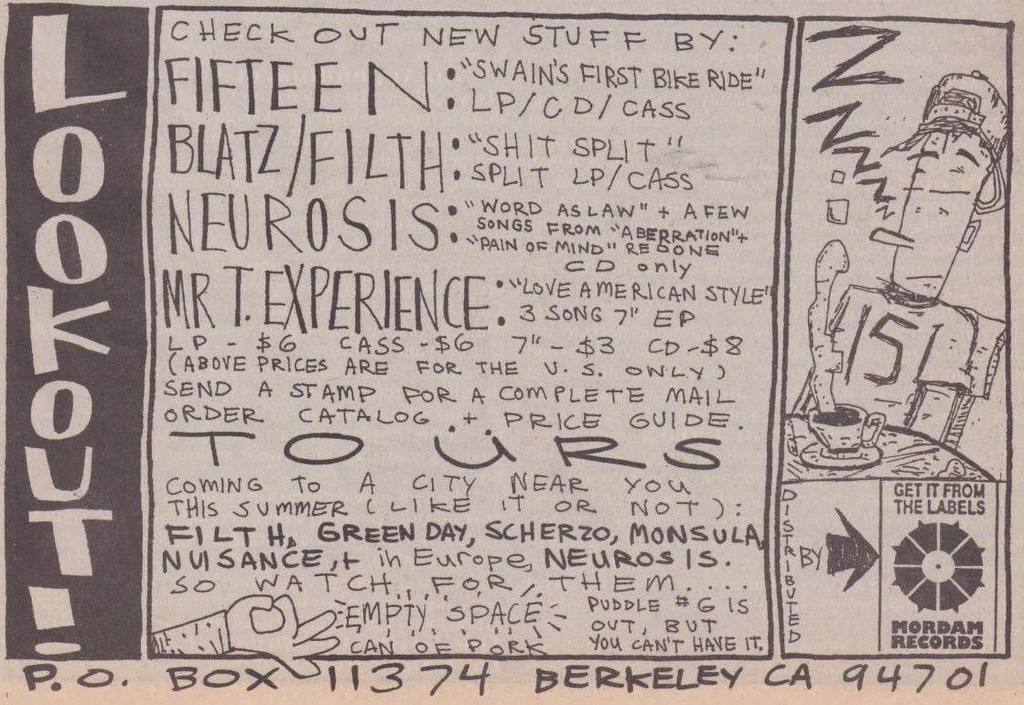 LOOKOUT!
CHECK OUT NEW STUFF BY:
FIFTEEN: "SWAIN'S FIRST BIKE RIDE"
LP/CD/CASS
BLATZ/FILTH: "SHIT SPLIT"
SPLIT LP/CASS
NEUROSIS: "WORD AS LAW" + A FEW
SONGS FROM "ABERRATION" +
"PAIN OF MIND" REDONE
CD only
MR T. EXPERIENCE: "LOVE AMERICAN STYLE"
3 SONG 7" EP
LP - $6 CASS - $6 7" - $3 CD - $8
(ABOVE PRICES ARE FOR THE U.S. ONLY)
SEND A STAMP FOR A COMPLETE MAIL
ORDER CATALOG + PRICE GUIDE.
TOURS
COMING TO A CITY NEAR YOU
THIS SUMMER (LIKE IT OR NOT):
FILTH, GREEN DAY, SCHERZO, MONSULA,
NUISANCE, + in Europe, NEUROSIS.
SO WATCH FOR THEM....
EMPTY SPACE
CAN OF PORK
PUDDLE #6 IS
OUT, BUT
YOU CAN'T HAVE IT.
Z Z Z Z Z Z
151
DISTRIBUTED
BY
GET IT FROM
THE LABELS
MORDAM
RECORDS
P.O. BOX 11374 BERKELEY CA 94701